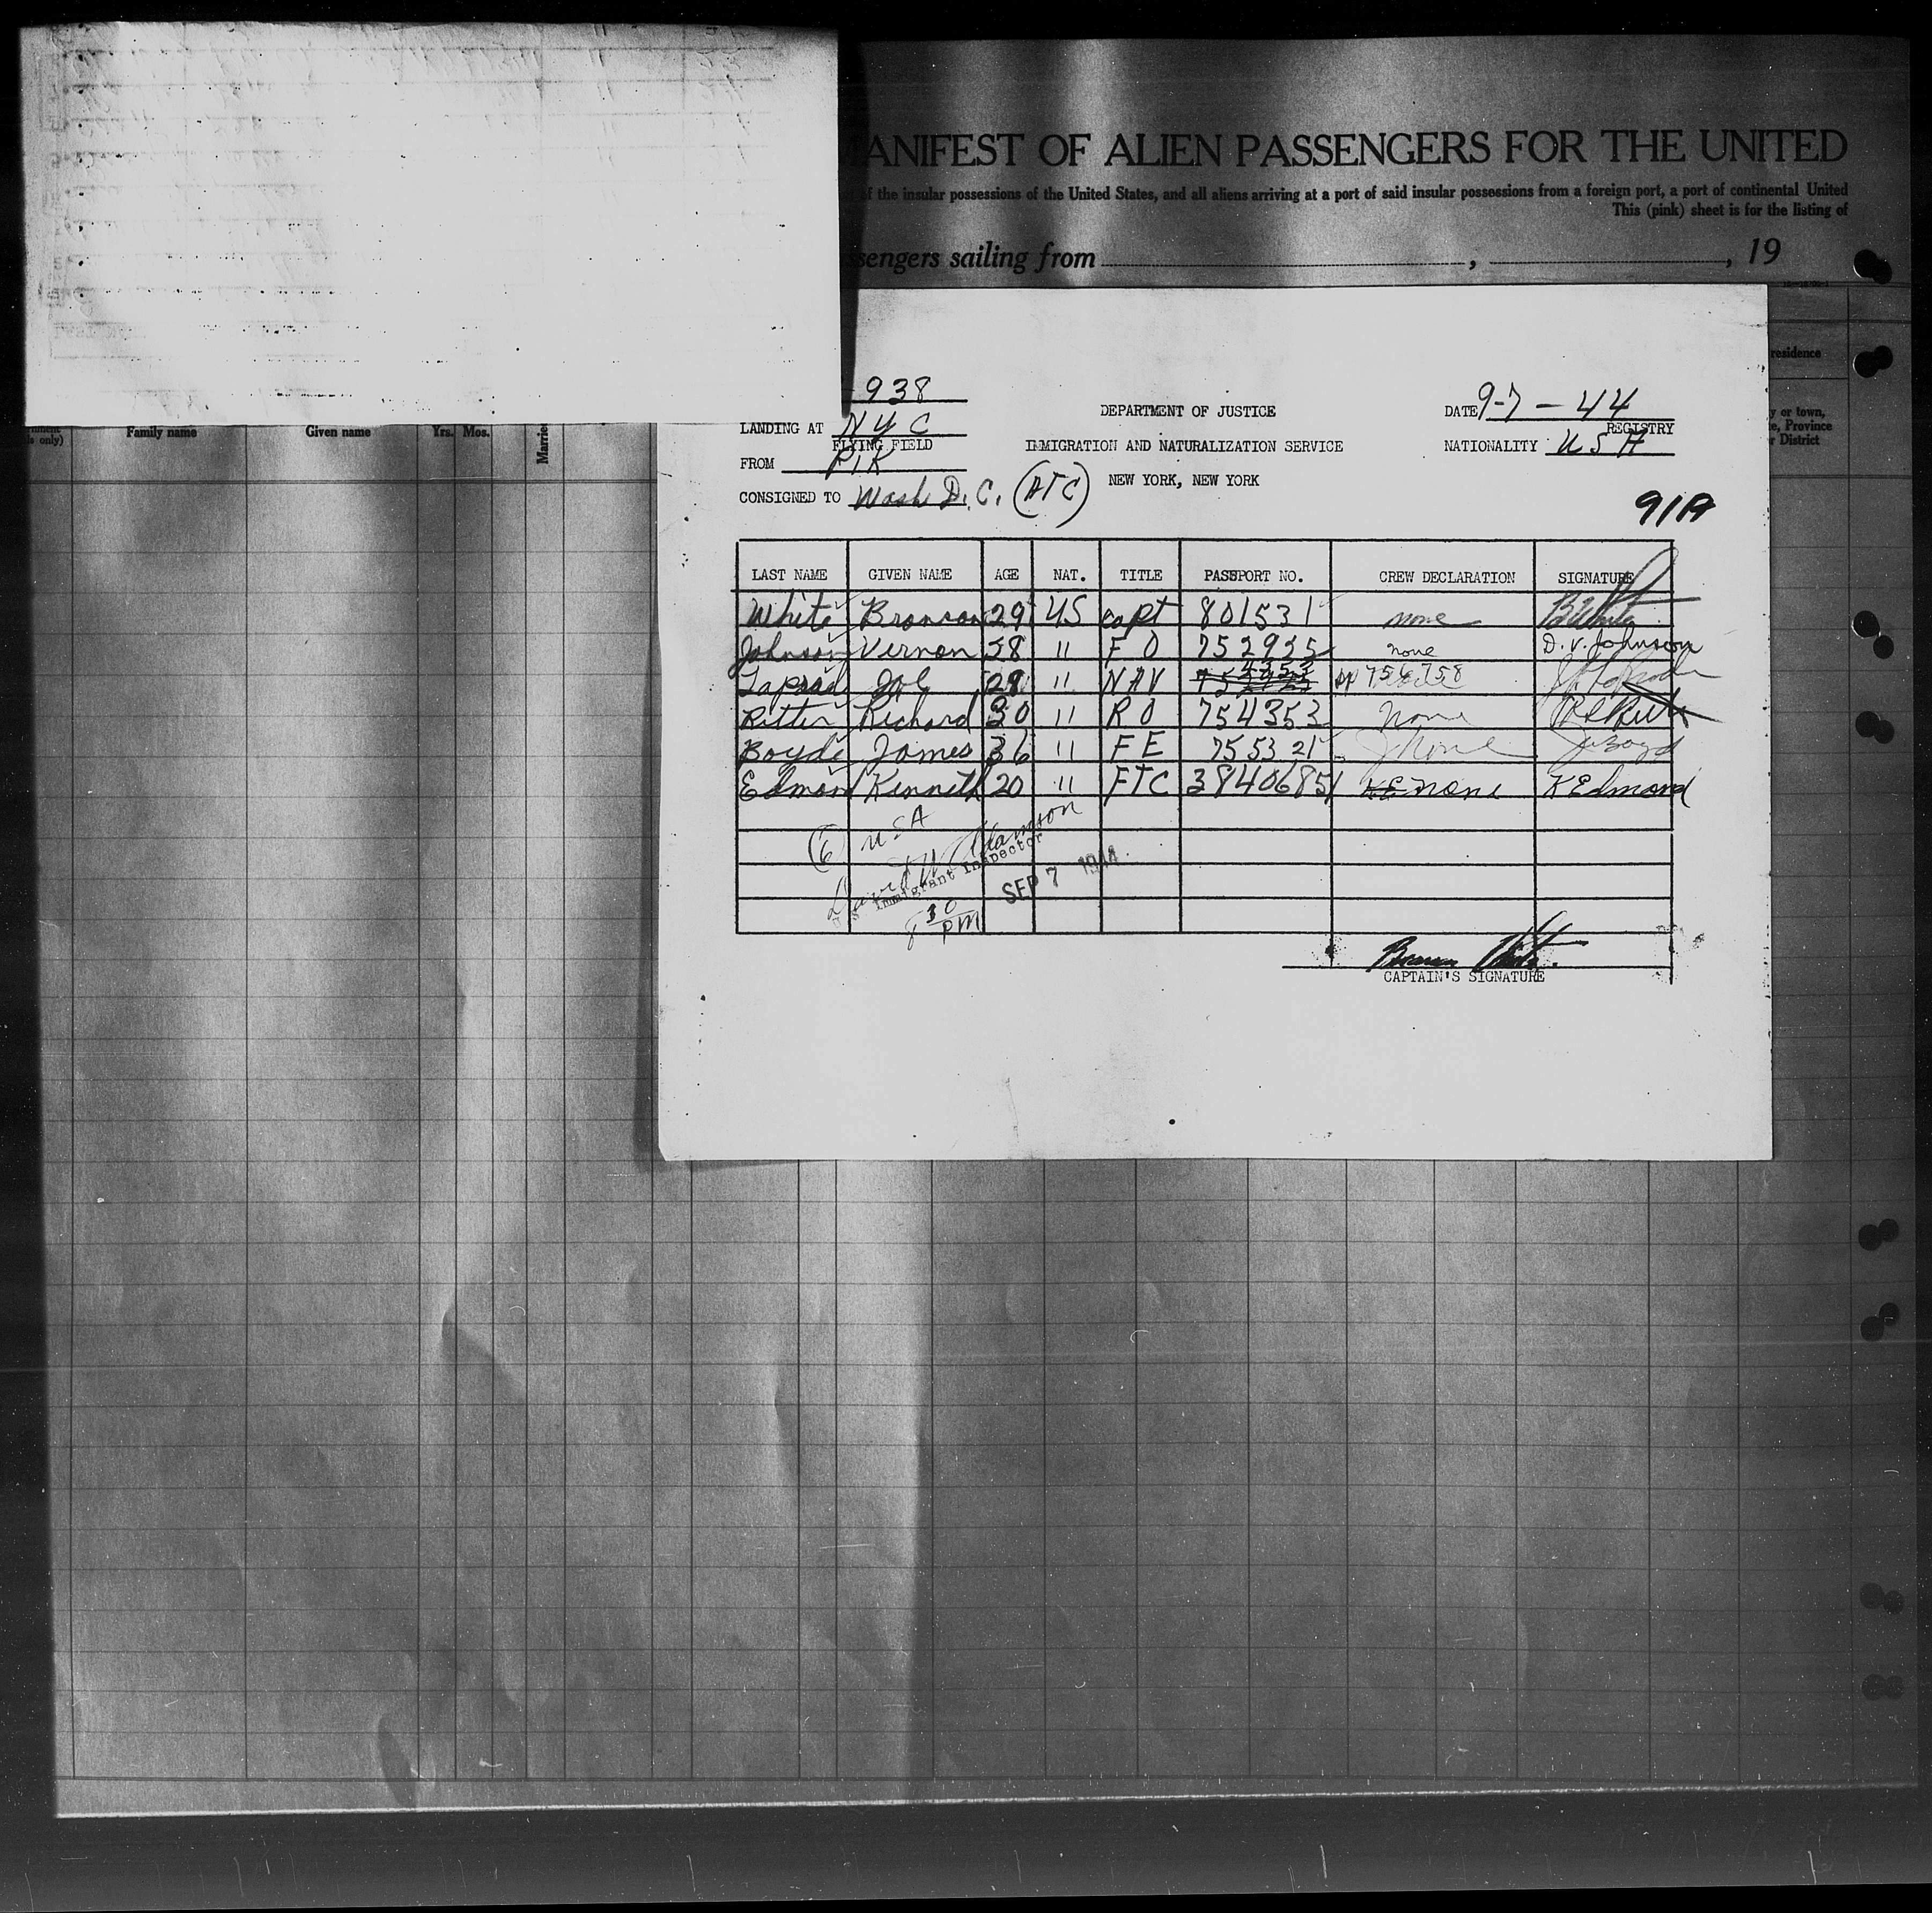 ANIFEST OF ALIEN PASSENGERS FOR THE UNITED
of the insular possessions of the United States, and all aliens arriving at a port of said insular possessions from a foreign port, a port of continental United
This (pink) sheet is for the listing of
ssengers sailing from , , 19
residence
y or town,
e, Province
r District
s only) Family name Given name Yrs. Mos. Married
938
DEPARTMENT OF JUSTICE DATE 9-7-44
LANDING AT NYC REGISTRY
FLYING FIELD IMMIGRATION AND NATURALIZATION SERVICE NATIONALITY USA
FROM PIK
CONSIGNED TO Wash D.C. (ATC) NEW YORK, NEW YORK
91A
LAST NAME GIVEN NAME AGE NAT. TITLE PASSPORT NO. CREW DECLARATION SIGNATURE
White Bronson 29 US capt 801531 none B White
Johnson Vernon 38 " F O 752935 none D. V. Johnson
28 " NAV 756758
Ritter Richard 30 " R O 754353 None
Boyde James 36 " F E 755321 None J Boyd
Edmond Kenneth 20 " FTC 38406851 KE none K Edmond
(6) USA
David W Adamson
US Immigrant Inspector
SEP 7 1944
8 30 PM
Bronson White
CAPTAIN'S SIGNATURE